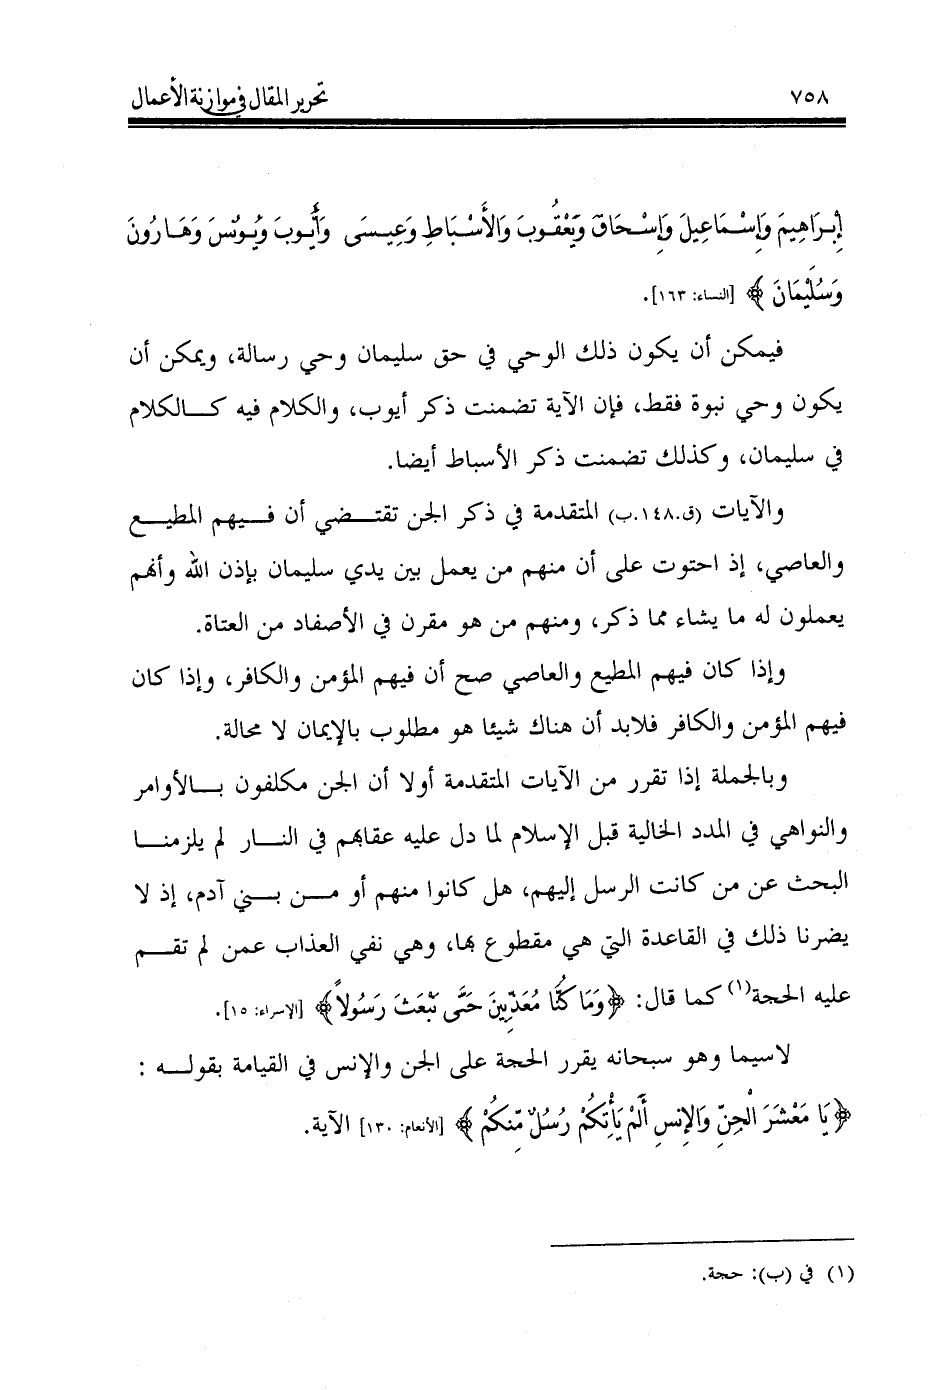 ٧٥٨ تحرير المقال في موازنة الأعمال
إِبْرَاهِيمَ وَإِسْمَاعِيلَ وَإِسْحَاقَ وَيَعْقُوبَ وَالأَسْبَاطِ وَعِيسَى وَأَيُّوبَ وَيُونُسَ وَهَارُونَ
وَسُلَيْمَانَ ﴾ [النساء: ١٦٣].
فيمكن أن يكون ذلك الوحي في حق سليمان وحي رسالة، ويمكن أن
يكون وحي نبوة فقط، فإن الآية تضمنت ذكر أيوب، والكلام فيه كالكلام
في سليمان، وكذلك تضمنت ذكر الأسباط أيضا.
والآيات (ق.١٤٨.ب) المتقدمة في ذكر الجن تقتضي أن فيهم المطيع
والعاصي، إذ احتوت على أن منهم من يعمل بين يدي سليمان بإذن الله وأنهم
يعملون له ما يشاء مما ذكر، ومنهم من هو مقرن في الأصفاد من العتاة.
وإذا كان فيهم المطيع والعاصي صح أن فيهم المؤمن والكافر، وإذا كان
فيهم المؤمن والكافر فلابد أن هناك شيئا هو مطلوب بالإيمان لا محالة.
وبالجملة إذا تقرر من الآيات المتقدمة أولا أن الجن مكلفون بالأوامر
والنواهي في المدد الخالية قبل الإسلام لما دل عليه عقابهم في النار لم يلزمنا
البحث عن من كانت الرسل إليهم، هل كانوا منهم أو من بني آدم، إذ لا
يضرنا ذلك في القاعدة التي هي مقطوع بها، وهي نفي العذاب عمن لم تقم
عليه الحجة(١) كما قال: ﴿وَمَا كُنَّا مُعَذِّبِينَ حَتَّى نَبْعَثَ رَسُولاً﴾ [الإسراء: ١٥].
لاسيما وهو سبحانه يقرر الحجة على الجن والإنس في القيامة بقوله :
﴿يَا مَعْشَرَ الْجِنِّ وَالإِنسِ أَلَمْ يَأْتِكُمْ رُسُلٌ مِّنكُمْ ﴾ [الأنعام: ١٣٠] الآية.
(١) في (ب): حجة.